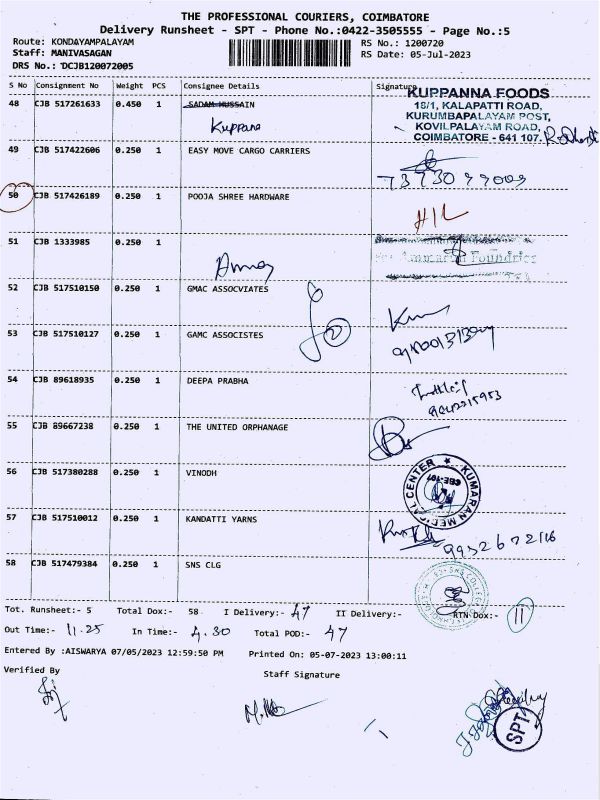 THE PROFESSIONAL COURIERS, COIMBATORE
Delivery Runsheet - SPT - Phone No.:0422-3505555 - Page No.:5
Route: KONDAYAMPALAYAM
RS No.: 1200720
Staff: MANIVASAGAN
RS Date: 05-Jul-2023
DRS No.: DCJB120072005
S No Consignment No Weight PCS Consignee Details Signature
48 CJB 517261633 0.450 1 SADAM HUSSAIN
Kuppana
KUPPANNA FOODS
18/1, KALAPATTI ROAD,
KURUMBAPALAYAM POST,
KOVILPALAYAM ROAD,
COIMBATORE - 641 107.
49 CJB 517422606 0.250 1 EASY MOVE CARGO CARRIERS
73730 99009
50 CJB 517426189 0.250 1 POOJA SHREE HARDWARE
51 CJB 1333985 0.250 1
Foundries
52 CJB 517510150 0.250 1 GMAC ASSOCVIATES
53 CJB 517510127 0.250 1 GAMC ASSOCISTES
54 CJB 89618935 0.250 1 DEEPA PRABHA
55 CJB 89667238 0.250 1 THE UNITED ORPHANAGE
56 CJB 517380288 0.250 1 VINODH
KUMARAN MEDICAL CENTER
57 CJB 517510012 0.250 1 KANDATTI YARNS
58 CJB 517479384 0.250 1 SNS CLG
Tot. Runsheet:- 5 Total Dox:- 58 I Delivery:- 47 II Delivery:- RTN Dox:- 11
Out Time:- 11.25 In Time:- 4.30 Total POD:- 47
Entered By :AISWARYA 07/05/2023 12:59:50 PM Printed On: 05-07-2023 13:00:11
Verified By
Staff Signature
SPT